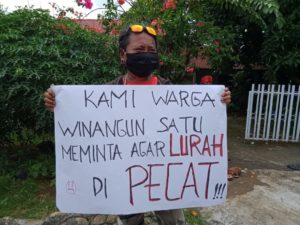 KAMI WARGA
WINANGUN SATU
MEMINTA AGAR LURAH
DI PECAT!!!